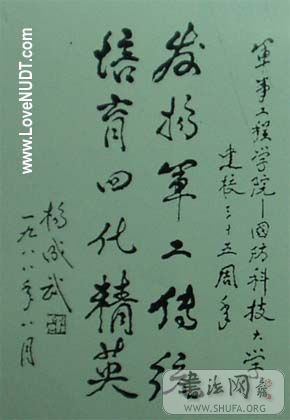 軍事工程学院—国防科技大学
建校三十五周年
发扬軍工傳统
培育四化精英
杨成武
一九八八年八月
www.LoveNUDT.com
书法网
WWW.SHUFA.ORG